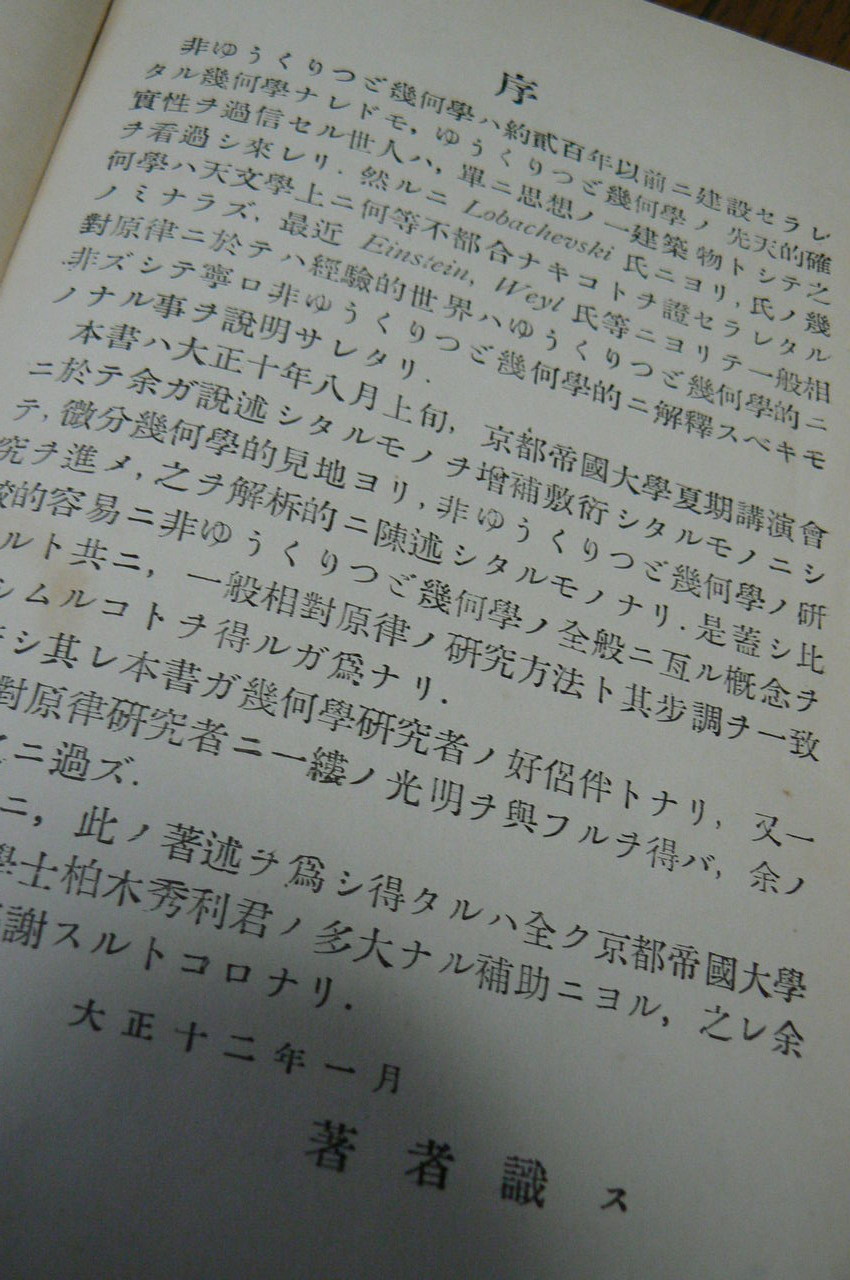 序
非ゆうくりつど幾何學ハ約貳百年以前ニ建設セラレ
タル幾何學ナレドモ,ゆうくりつど幾何學ノ先天的確
實性ヲ過信セル世人ハ,單ニ思想ノ一建築物トシテ之
ヲ看過シ來レリ.然ルニ Lobachevski 氏ニヨリ,氏ノ幾
何學ハ天文學上ニ何等不都合ナキコトヲ證セラレタル
ノミナラズ,最近 Einstein, Weyl 氏等ニヨリテ一般相
對原律ニ於テハ經驗的世界ハゆうくりつど幾何學的ニ
非ズシテ寧ロ非ゆうくりつど幾何學的ニ解釋スベキモ
ノナル事ヲ說明サレタリ.
本書ハ大正十年八月上旬,京都帝國大學夏期講演會
ニ於テ余ガ說述シタルモノヲ增補敷衍シタルモノニシ
テ,微分幾何學的見地ヨリ,非ゆうくりつど幾何學ノ研
究ヲ進メ,之ヲ解柝的ニ陳述シタルモノナリ.是蓋シ比
較的容易ニ非ゆうくりつど幾何學ノ全般ニ亙ル槪念ヲ
ルト共ニ,一般相對原律ノ研究方法ト其步調ヲ一致
シムルコトヲ得ルガ爲ナリ.
シ其レ本書ガ幾何學研究者ノ好侶伴トナリ,又一
對原律硏究者ニ一縷ノ光明ヲ與フルヲ得バ,余ノ
ニ過ズ.
ニ,此ノ著述ヲ爲シ得タルハ全ク京都帝國大學
學士柏木秀利君ノ多大ナル補助ニヨル,之レ余
謝スルトコロナリ.
大正十二年一月
著者識ス